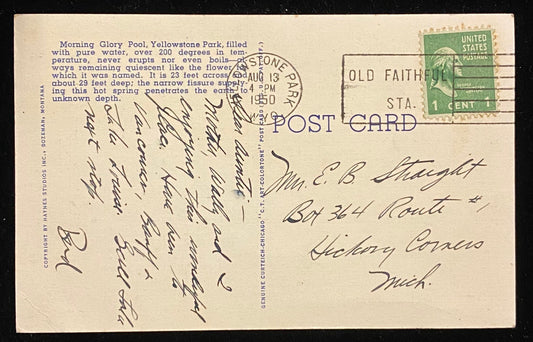 Morning Glory Pool, Yellowstone Park, filled
with pure water, over 200 degrees in tem-
perature, never erupts nor even boils
ways remaining quiescent like the flower
which it was named. It is 23 feet across and
about 29 feet deep; the narrow fissure supply-
ing this hot spring penetrates the earth to
unknown depth.
COPYRIGHT BY HAYNES STUDIOS INC., BOZEMAN, MONTANA
Mother, Wally and I
enjoying this wonderful
place. Have been to
Vancouver, Banff &
Lake Louise. Salt Lake
next stop.
GENUINE CURTEICH-CHICAGO "C.T. ART-COLORTONE" POST CARD
YELLOWSTONE PARK
AUG 13
4 PM
1950
WYO
OLD FAITHFUL
STA.
UNITED
STATES
POSTAGE
1 CENT 1
POST CARD
Mr. E. B. Straight
Box 364 Route #1
Hickory Corners
Mich.